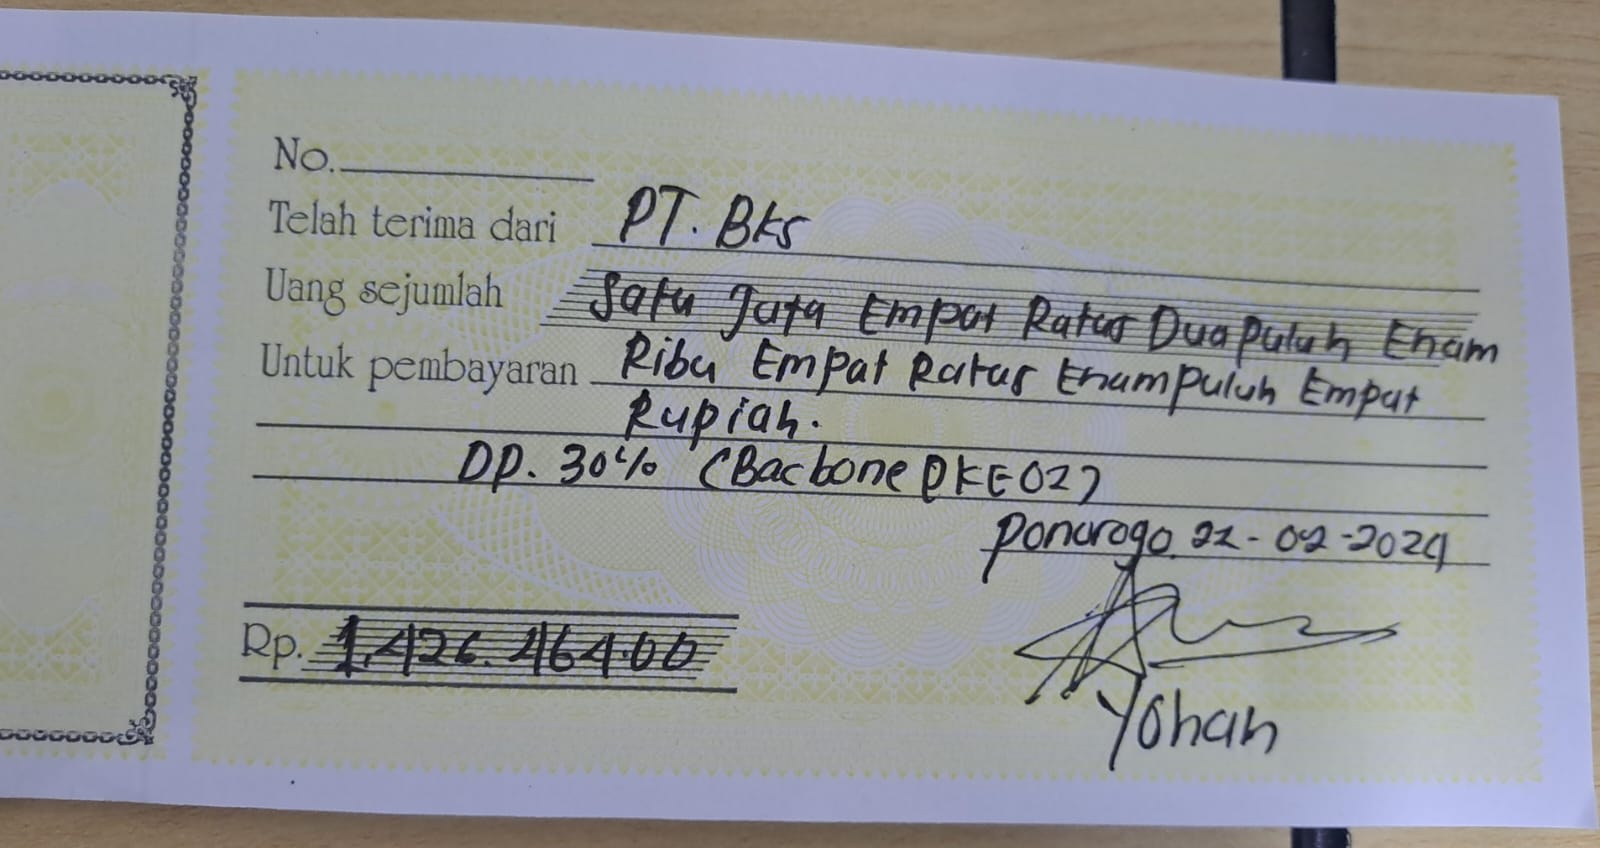 No.
Telah terima dari PT. Bks
Uang sejumlah Satu Juta Empat Ratus Dua Puluh Enam
Untuk pembayaran Ribu Empat Ratus Enam Puluh Empat
Rupiah.
DP. 30% (Bacbone PKE02)
Ponorogo 22-02-2024
Rp. 1.426.464.00
Yohan